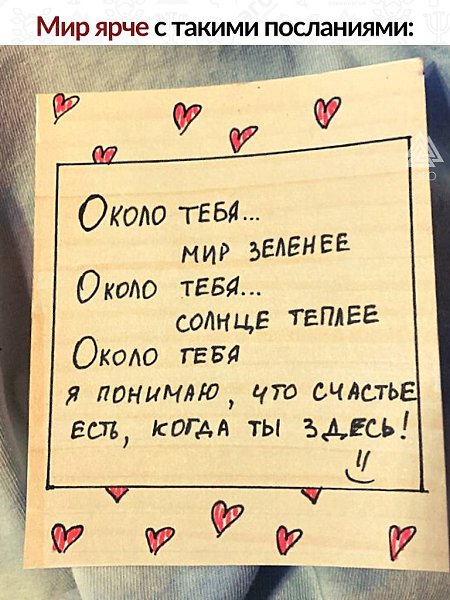 Мир ярче с такими посланиями:
Около тебя...
мир зеленее
Около тебя...
солнце теплее
Около тебя
я понимаю, что счастье
есть, когда ты здесь!